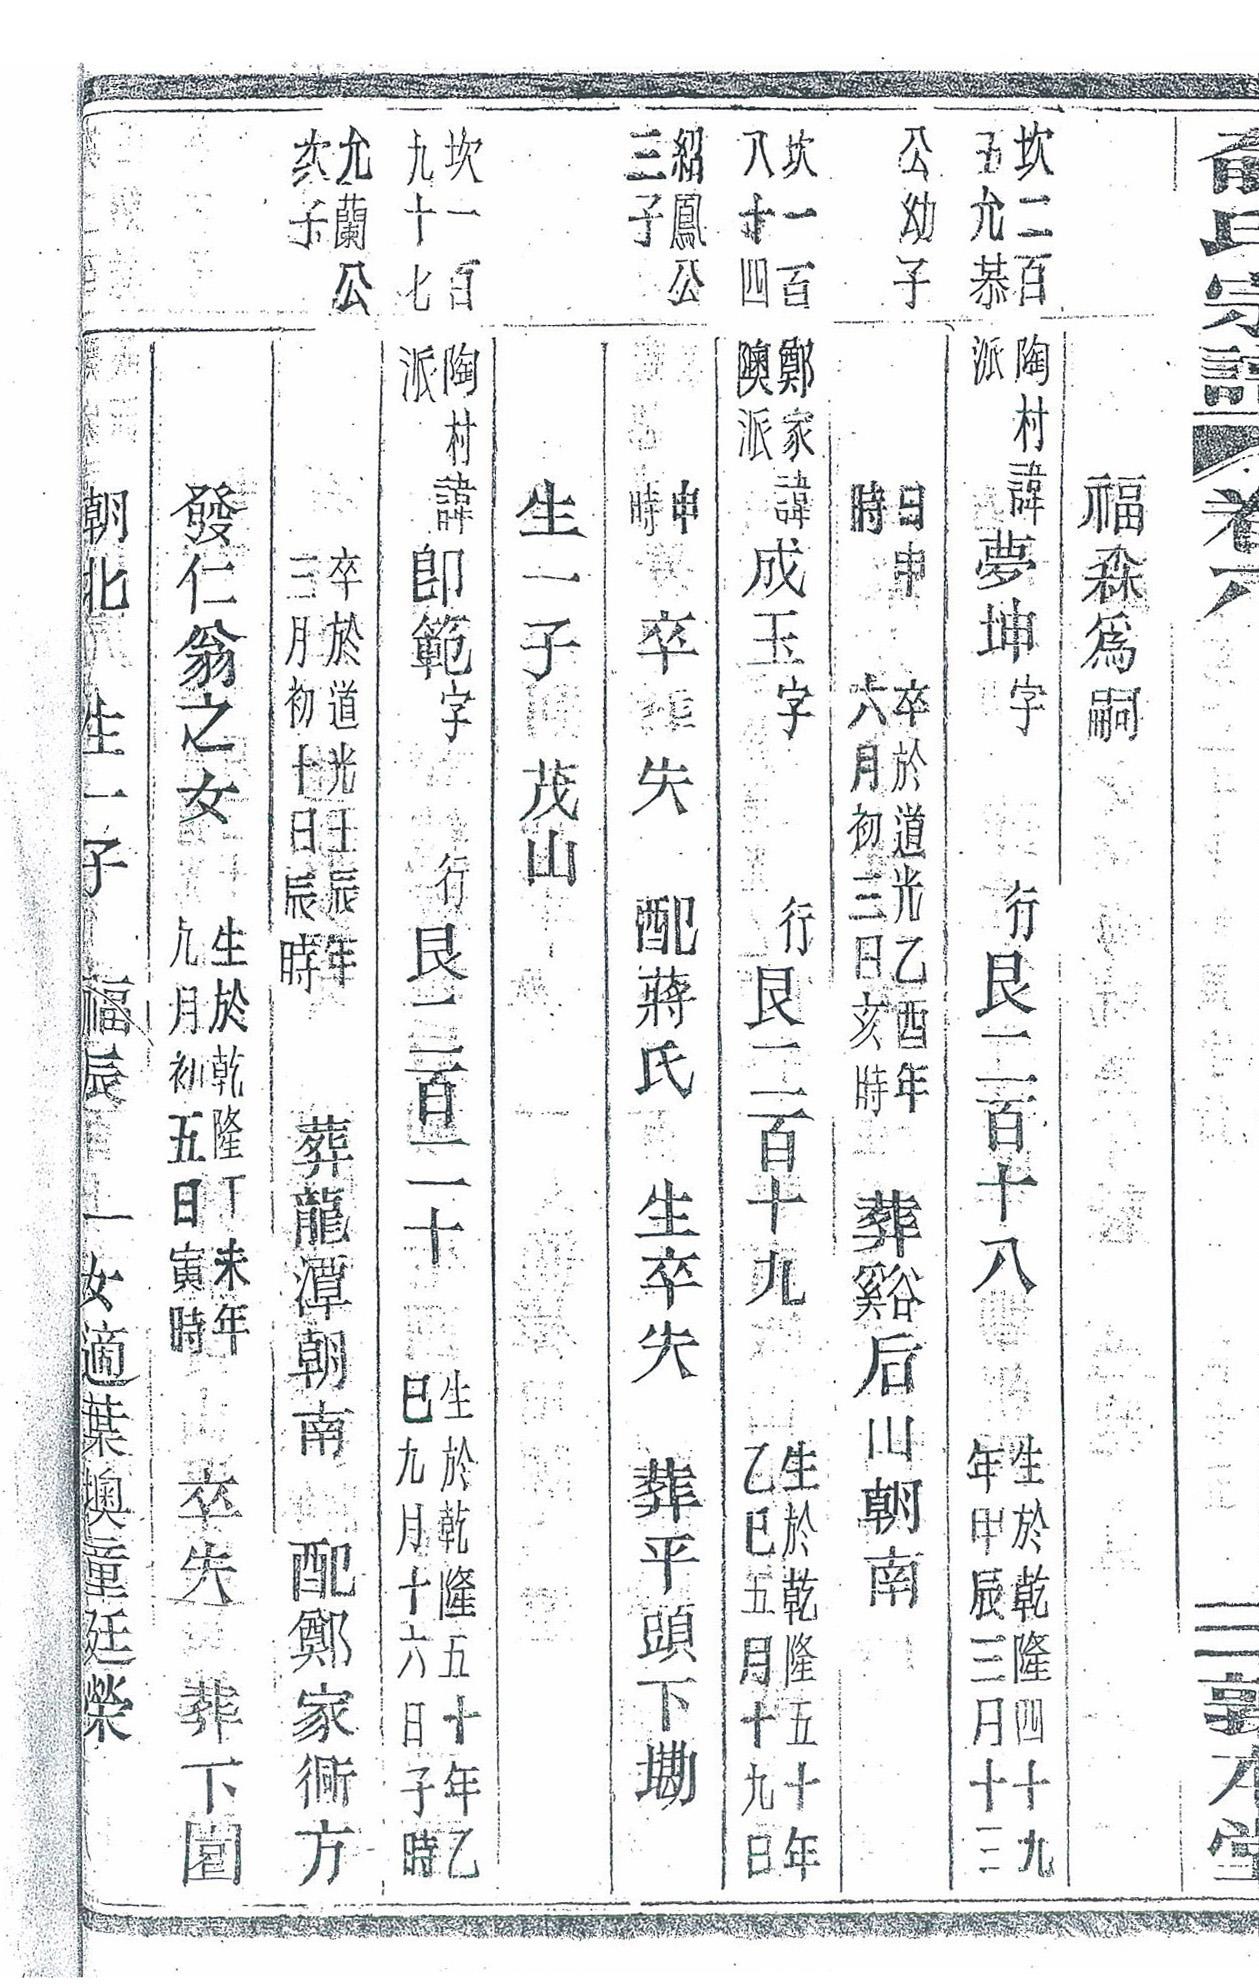 俞氏宗譜 卷六 三 敦本堂
福森爲嗣
坎二百五允恭 陶村派諱夢坤字 行艮一二百十八 生於乾隆四十九年甲辰三月十三
公幼子 日申時 卒於道光乙酉年六月初三日亥時 葬谿后山朝南
坎一百八十四 鄭家隩派諱成玉字 行艮一二百十九 生於乾隆五十年乙巳五月十九日
紹鳳公三子 申時 卒失 配蔣氏 生卒失 葬平頭下墈
生一子 茂山
坎一百九十七 陶村派諱卽範字 行艮一二百二十 生於乾隆五十年乙巳九月十六日子時
允蘭公次子 卒於道光壬辰年三月初十日辰時 葬龍潭朝南 配鄭家衕方
發仁翁之女 生於乾隆丁未年九月初五日寅時 卒失 葬下園
朝北 生一子 福辰 一女適葉墺童廷榮